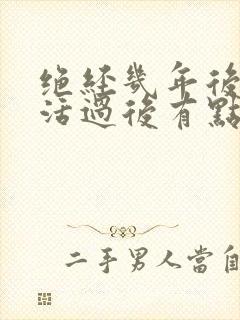 绝經幾年後
活過後有點
二手男人當自